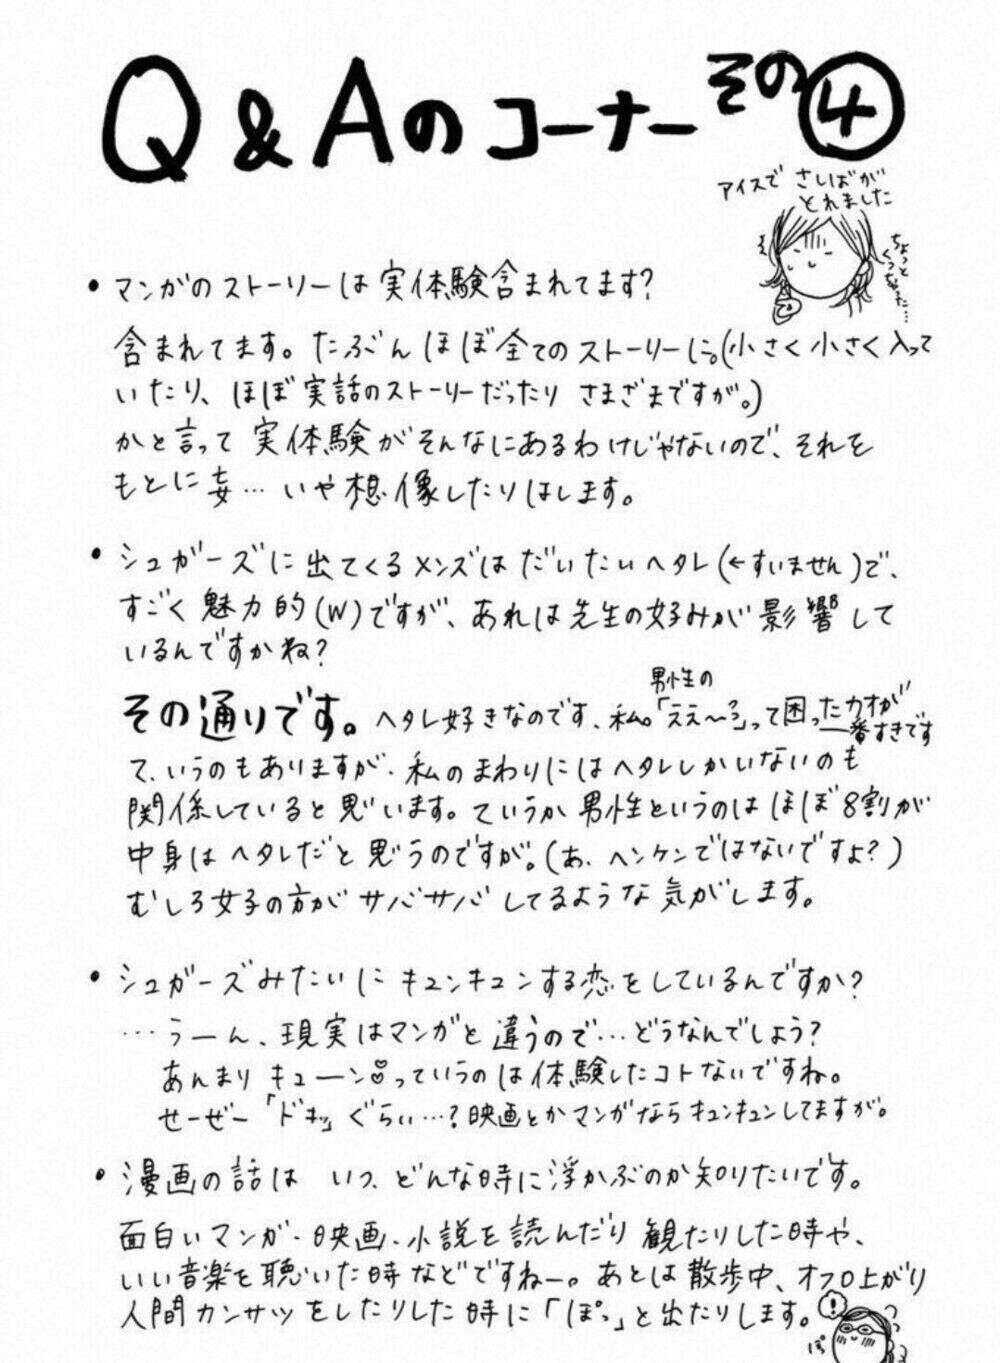 Q&Aのコーナー その④
アイスで さしばが
とれました
ちょっと
くっちゃった…
・マンガのストーリーは実体験含まれてます?
含まれてます。たぶんほぼ全てのストーリーに。(小さく小さく入って
いたり、ほぼ実話のストーリーだったり さまざまですが。)
かと言って 実体験がそんなにあるわけじゃないので、それを
もとに妄…いや想像したりはします。
・シュガーズに出てくるメンズはだいたいヘタレ(←すいません)で、
すごく魅力的(W)ですが、あれは先生の好みが影響して
いるんですかね?
その通りです。ヘタレ好きなのです、私。男性の「ええ〜っ」って困ったカオが
一番すきです
て、いうのもありますが、私のまわりにはヘタレしかいないのも
関係していると思います。ていうか男性というのはほぼ8割が
中身はヘタレだと思うのですが。(あ、ヘンケンではないですよ?)
むしろ女子の方がサバサバしてるような気がします。
・シュガーズみたいにキュンキュンする恋をしているんですか?
…うーん、現実はマンガと違うので…どうなんでしょう?
あんまりキューン♡っていうのは体験したコトないですね。
せーぜー「ドキッ」ぐらい…?映画とかマンガならキュンキュンしてますが。
・漫画の話は いつ、どんな時に浮かぶのか知りたいです。
面白いマンガ・映画・小説を読んだり観たりした時や、
いい音楽を聴いた時などですねー。あとは散歩中、オフロ上がり
人間カンサツをしたりした時に「ぽっ」と出たりします。
!
ぽ